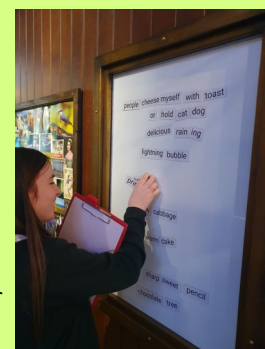 people cheese myself with toast
or hold cat dog
delicious rain ing
lightning bubble
cabbage
cake
sharp sweet pencil
chocolate tree